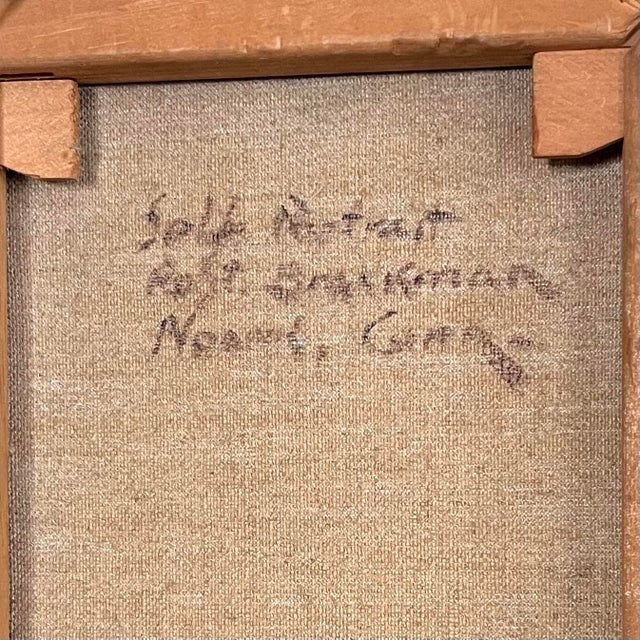 Self Portrait
Robt Brackman
Noank, Conn-